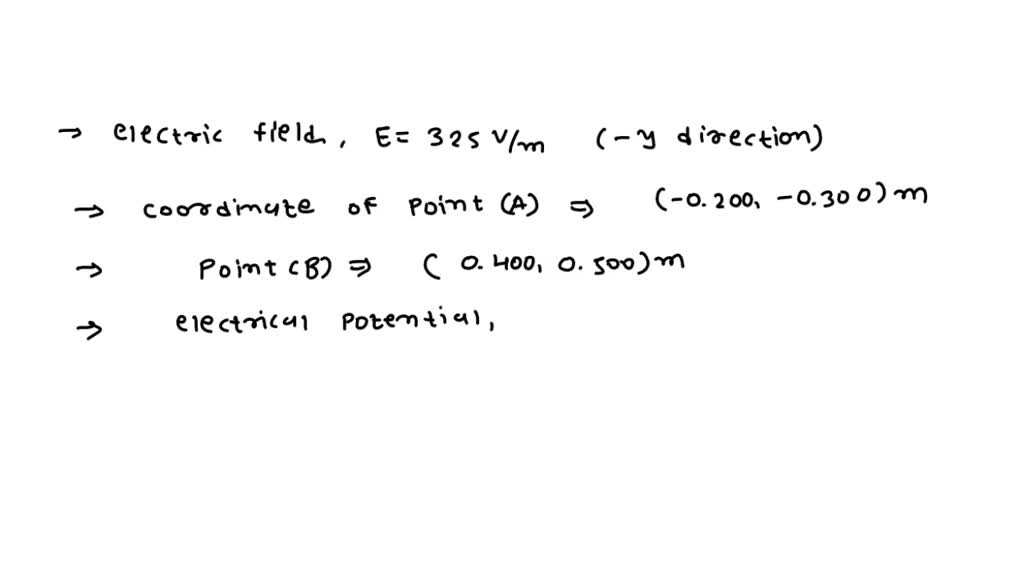 → electric field, E= 325 V/m (-y direction)
→ coordinate of Point (A) ⇒ (-0.200, -0.300) m
→ Point (B) ⇒ ( 0.400, 0.500) m
→ electrical Potential,